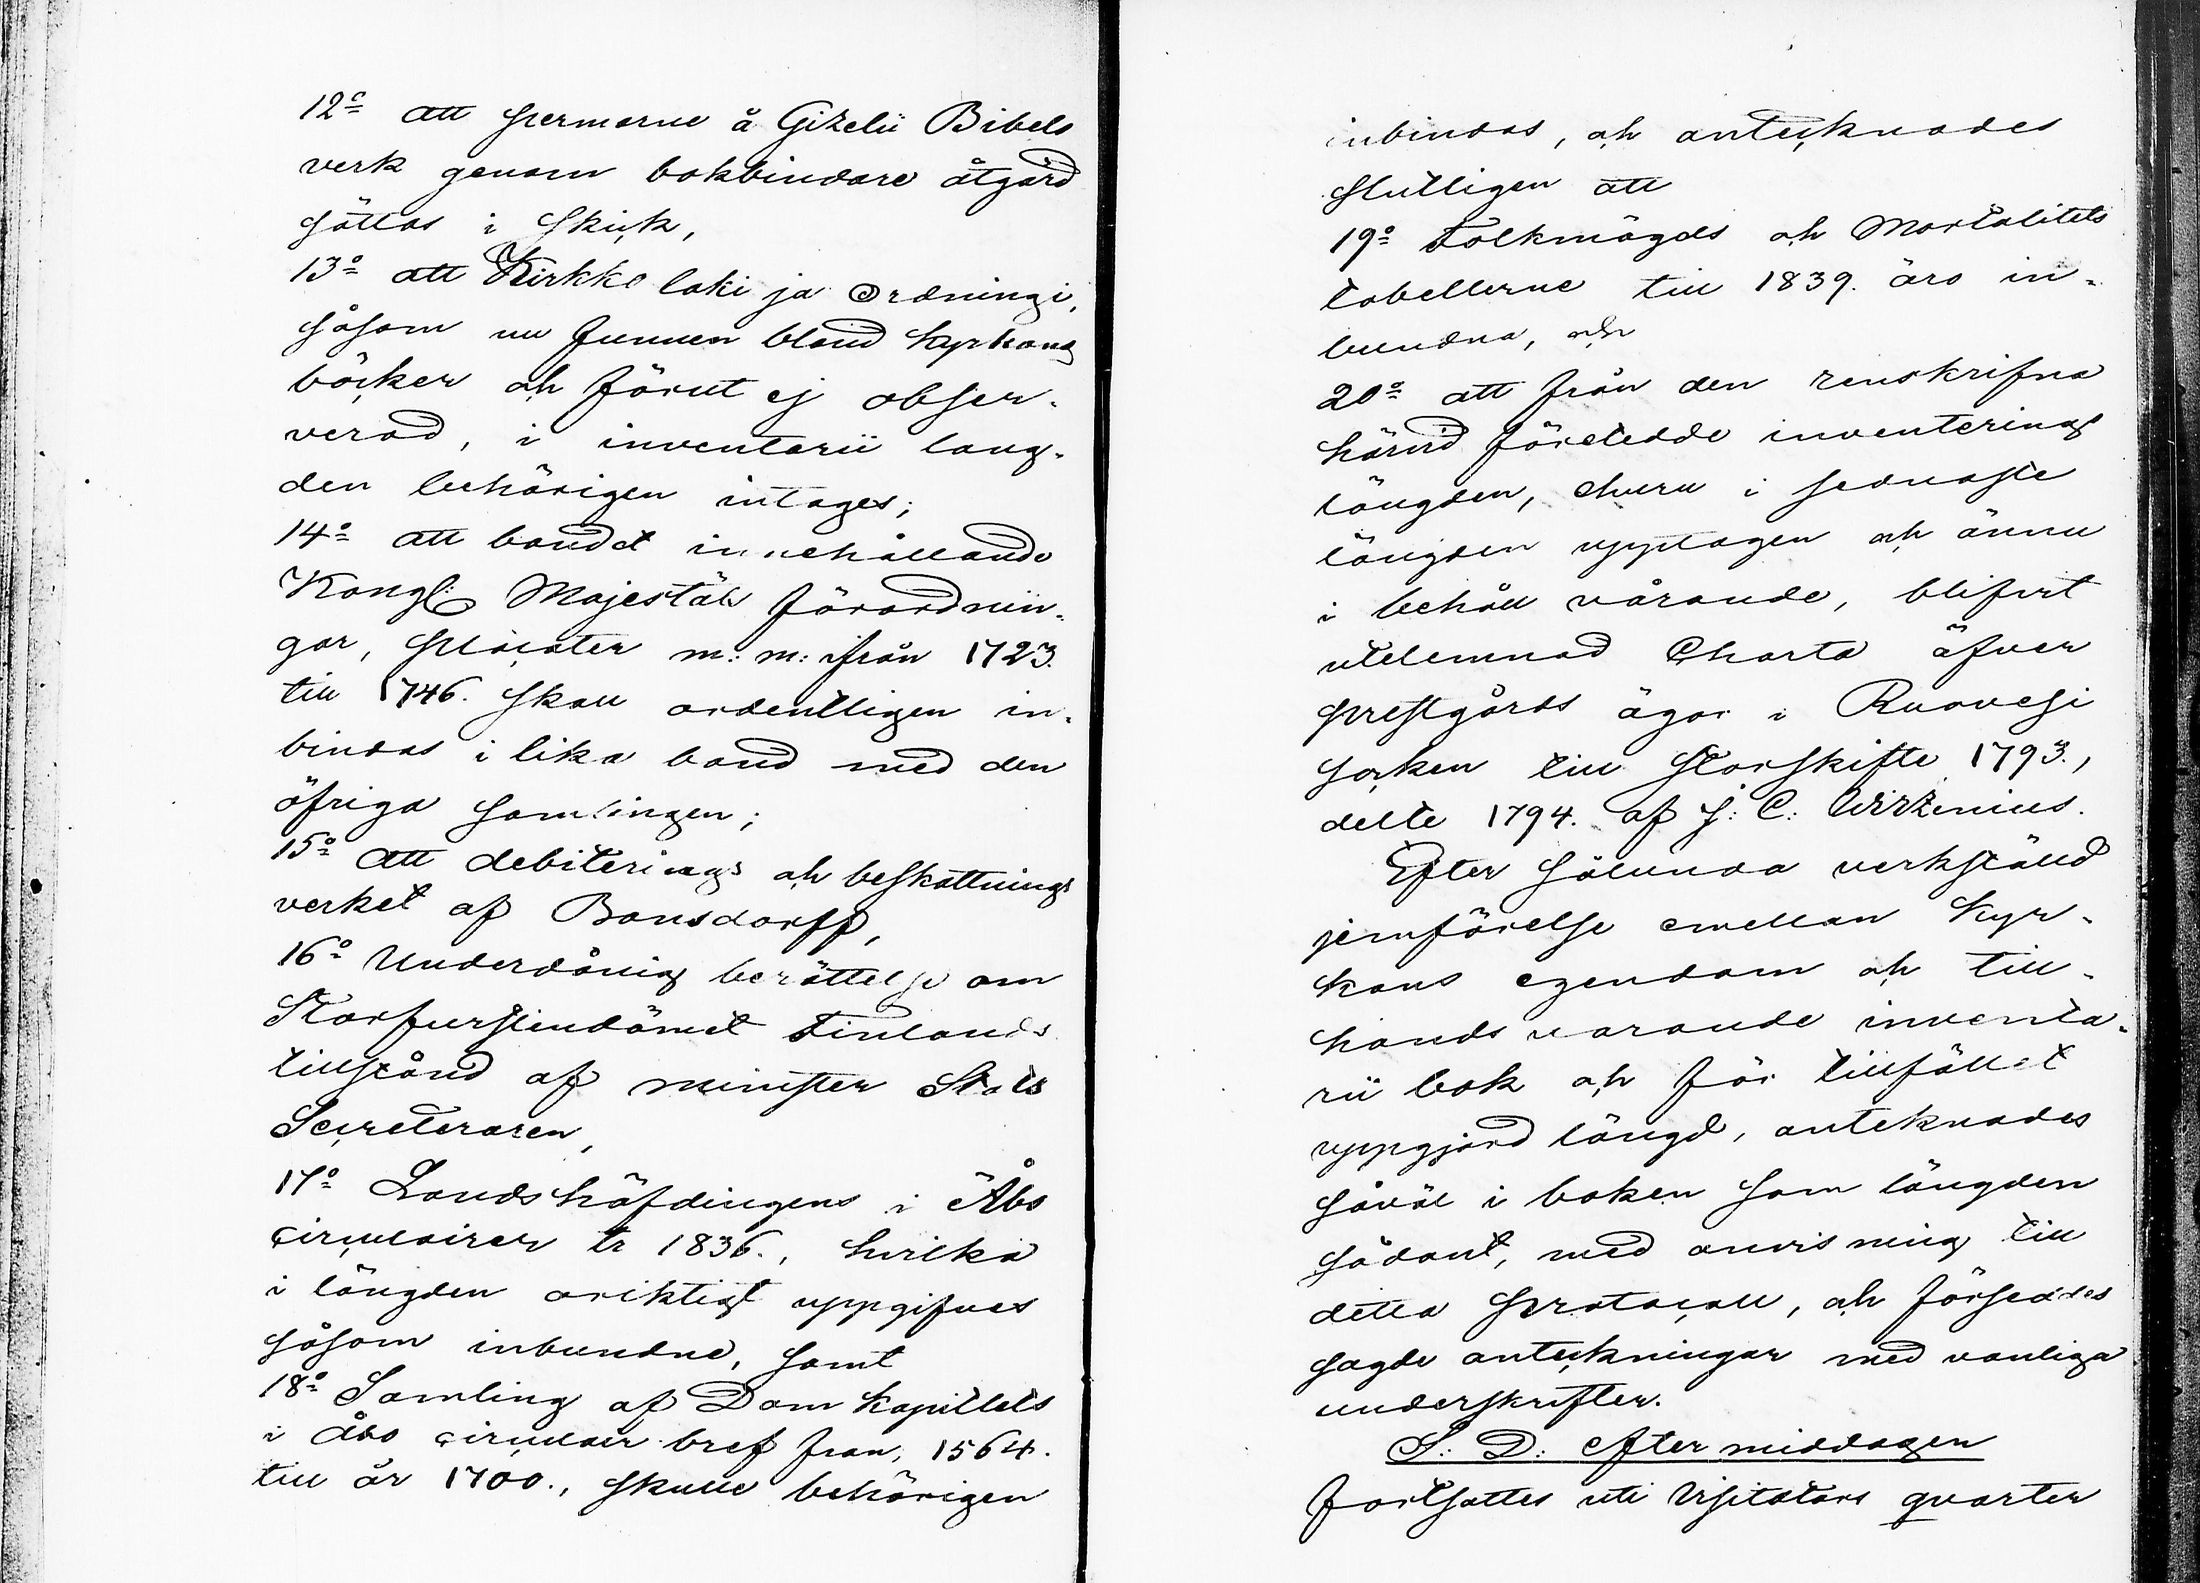 12:o att permarne å Gizelii Bibels
verk genom bokbindare åtgärd
sättas i skick,
13:o att Kirkko laki ja Ordningi,
såsom nu funnen bland kyrkans
böcker och förut ej obser-
verad, i inventarii läng-
den behörigen intages;
14:o att bandet innehållande
Kongl: Majestäts förordnin-
gar, placater m: m: ifrån 1723.
till 1746. skall ordentligen in-
bindas i lika band med den
öfriga samlingen;
15:o att debiterings och beskattnings
verket af Bonsdorff,
16:o Underdånig berättelse om
Storfurstendömet Finlands
tillstånd af minister Stats
Secreteraren,
17:o Landshöfdingens i Åbo
circulairer tr 1836., hvilka
i längden oriktigt uppgifves
såsom inbundne, samt
18:o Samling af Dom kapitlets
i Åbo circulair bref fran, 1564.
till år 1700., skulle behörigen
inbindas, och antecknades
slutligen att
19:o Folkmägds och Mortalitets
tabellerne till 1839. äro in-
bundna, och
20:o att från den renskrifna
härvid företedde inventerings
längden, ehuru i sednaste
längden upptagen och ännu
i behåll varande, blifvit
utelemnad Charta öfver
prestgårds ägor i Ruovesi
socken till storskifte 1793.,
delte 1794. af J: C: Wirzenius.
Efter sålunda verkstäld
jemförelse emellan kyr-
kans egendom och till-
hands varande inventa-
rii bok och för tillfället
uppgjord längd, anteknades
såväl i boken som längden
sådant, med anvisning till
detta protocoll, och förseddes
sagde anteckningar med vanliga
underskrifter.
S: D: efter middagen
fortsattes uti Visitators qvarter